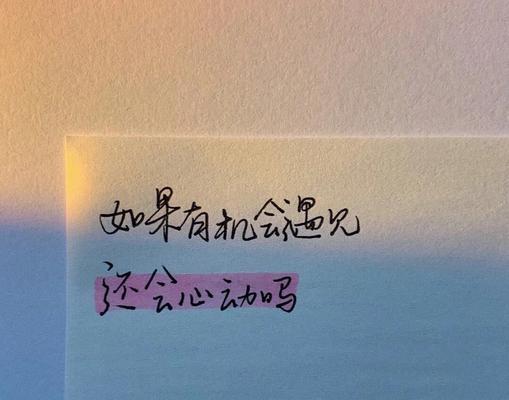 如果有机会遇见
还会心动吗